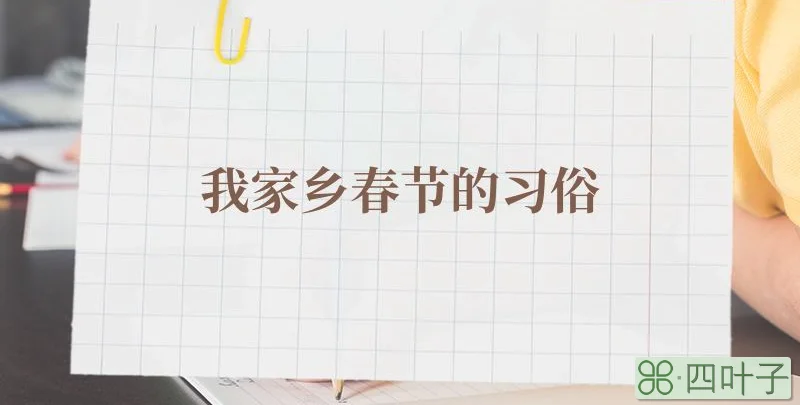 我家乡春节的习俗
四叶子